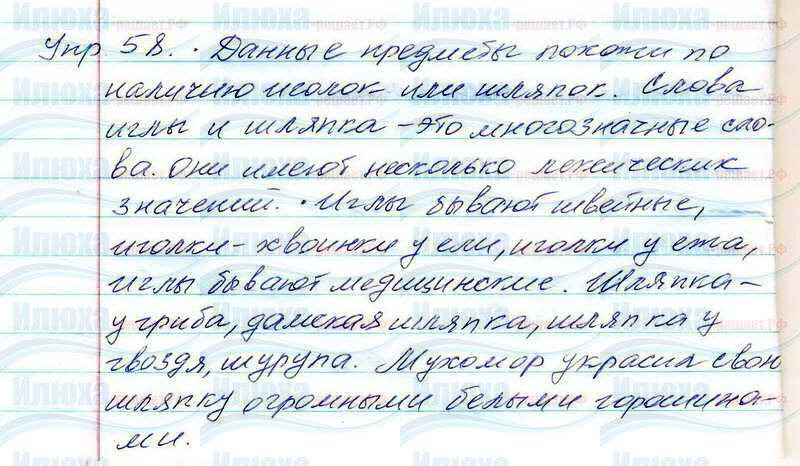 Упр. 58. • Данные предметы похожи по
наличию иголок или шляпок. Слова
иглы и шляпка – это многозначные сло-
ва. Они имеют несколько лексических
значений. • Иглы бывают швейные,
иголки-хвоинки у ели, иголки у ежа,
иглы бывают медицинские. Шляпка –
у гриба, дамская шляпка, шляпка у
гвоздя, шурупа. Мухомор украсил свою
шляпку огромными белыми горошина-
ми.